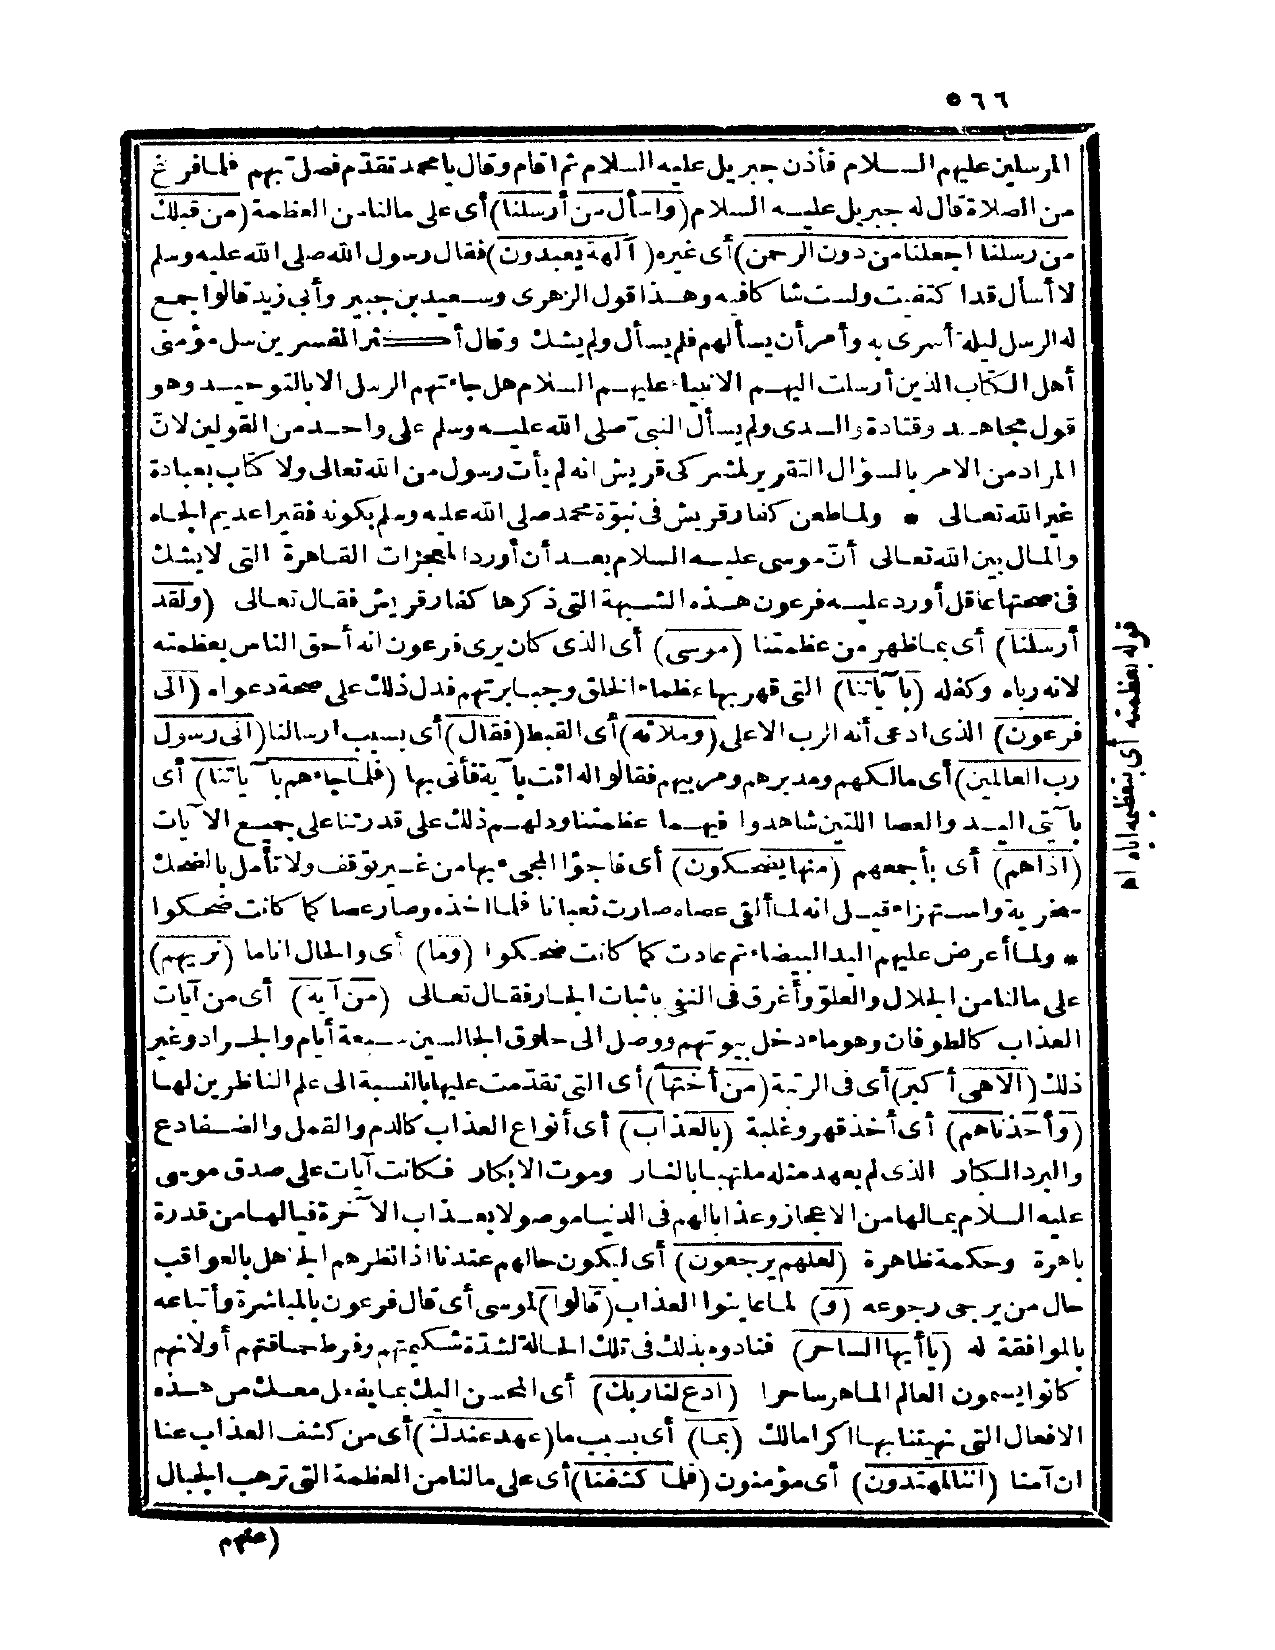 ٥٦٦
المرسلين عليهم السلام فأذن جبريل عليه السلام ثم اقام وقال يا محمد تقدّم فصلّ بهم فلما فرغ
من الصلاة قال له جبريل عليه السلام (واسأل من أرسلنا) أى على مالنا من العظمة (من قبلك
من رسلنا اجعلنا من دون الرحمن) أى غيره (آلهة يعبدون) فقال رسول الله صلى الله عليه وسلم
لا أسأل قد اكتفيت ولست شاكا فيه وهذا قول الزهرى وسعيد بن جبير وأبى زيد قالوا جمع
له الرسل ليلة أسرى به وأمر أن يسألهم فلم يسأل ولم يشك وقال أكثر المفسرين سل مؤمنى
أهل الكتاب الذين أرسلت اليهم الانبياء عليهم السلام هل جاءتهم الرسل الا بالتوحيد وهو
قول مجاهد وقتادة والسدى ولم يسأل النبىّ صلى الله عليه وسلم على واحد من القولين لانّ
المراد من الامر بالسؤال التقرير لمشركى قريش انه لم يأت رسول من الله تعالى ولا كتاب بعبادة
غير الله تعالى * ولما طعن كفار قريش فى نبوّة محمد صلى الله عليه وسلم بكونه فقيرا عديم الجاه
والمال بين الله تعالى أنّ موسى عليه السلام بعد أن أورد المعجزات القاهرة التى لا يشك
فى صحتها عاقل أورد عليه فرعون هذه الشبهة التى ذكرها كفار قريش فقال تعالى (ولقد
أرسلنا) أى بما ظهر من عظمتنا (موسى) أى الذى كان يرى فرعون انه أحق الناس بعظمته
لانه رباه وكفله (بآياتنا) التى قهر بها عظماء الخلق وجبابرتهم فدل ذلك على صحة دعواه (الى
فرعون) الذى ادعى أنه الرب الاعلى (وملائه) أى القبط (فقال) أى بسبب ارسالنا (انى رسول
رب العالمين) أى مالكهم ومدبرهم ومربيهم فقالوا له ائت بآية فأتى بها (فلما جاءهم بآياتنا) أى
بآيتى اليد والعصا اللتين شاهدوا فيهما عظمتنا ودلهم ذلك على قدرتنا على جميع الآيات
(اذاهم) أى بأجمعهم (منها يضحكون) أى فاجؤا المجىء بها من غير توقف ولا تأمل بالضحك
سخرية واستهزاء قيل انه لما ألقى عصاه صارت ثعبانا فلما اخذه وصار عصا كما كانت ضحكوا
* ولما أعرض عليهم اليد البيضاء ثم عادت كما كانت ضحكوا (وما) أى والحال اناما (نريهم)
على مالنا من الجلال والعلوّ وأغرق فى النفى باثبات الجار فقال تعالى (من آية) أى من آيات
العذاب كالطوفان وهو ماء دخل بيوتهم ووصل الى حلوق الجالسين سبعة أيام والجراد وغير
ذلك (الا هى أكبر) أى فى الرتبة (من أختها) أى التى تقدّمت عليها بالنسبة الى علم الناظرين لها
(وأخذناهم) أى أخذ قهر وغلبة (بالعذاب) أى أنواع العذاب كالدم والقمل والضفادع
والبرد الكبار الذى لم يعهد مثله ملتهبا بالنار وموت الابكار فكانت آيات على صدق موسى
عليه السلام بمالها من الاعجاز وعذابالهم فى الدنيا موصولا بعذاب الآخرة فيالها من قدرة
باهرة وحكمة ظاهرة (لعلهم يرجعون) أى ليكون حالهم عندنا اذا نظرهم الجاهل بالعواقب
حال من يرجى رجوعه (و) لما عاينوا العذاب (قالوا) لموسى أى قال فرعون بالمباشرة وأتباعه
بالموافقة له (يا أيها الساحر) فنادوه بذلك فى تلك الحالة لشدّة شكيمتهم وفرط حماقتهم أولانهم
كانوا يسمون العالم الماهر ساحرا (ادع لنا ربك) أى المحسن اليك بما يفعل معك من هذه
الافعال التى نهيتنا بها اكرامالك (بما) أى بسبب ما (عهد عندك) أى من كشف العذاب عنا
ان آمنا (اننا لمهتدون) أى مؤمنون (فلما كشفنا) أى على مالنا من العظمة التى ترهب الجبال
(عنهم
قوله بعظمته أى بتعظيمه اياه اه